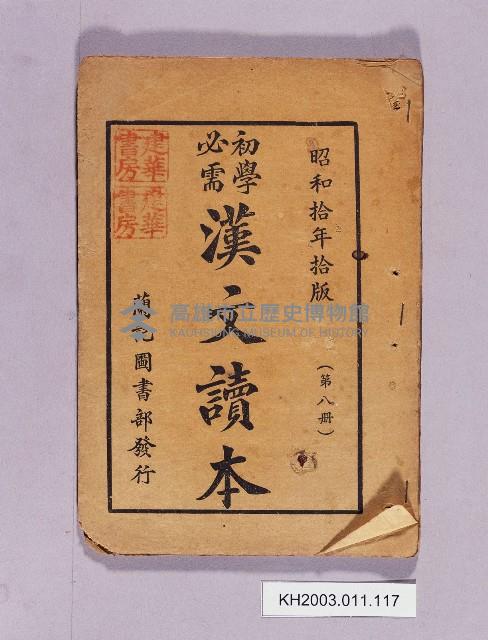 昭和拾年拾版
(第八冊)
初學
必需
漢文讀本
蘭記圖書部發行
建華
書房
建華
書房
高雄市立歷史博物館
KAOHSIUNG MUSEUM OF HISTORY
KH2003.011.117